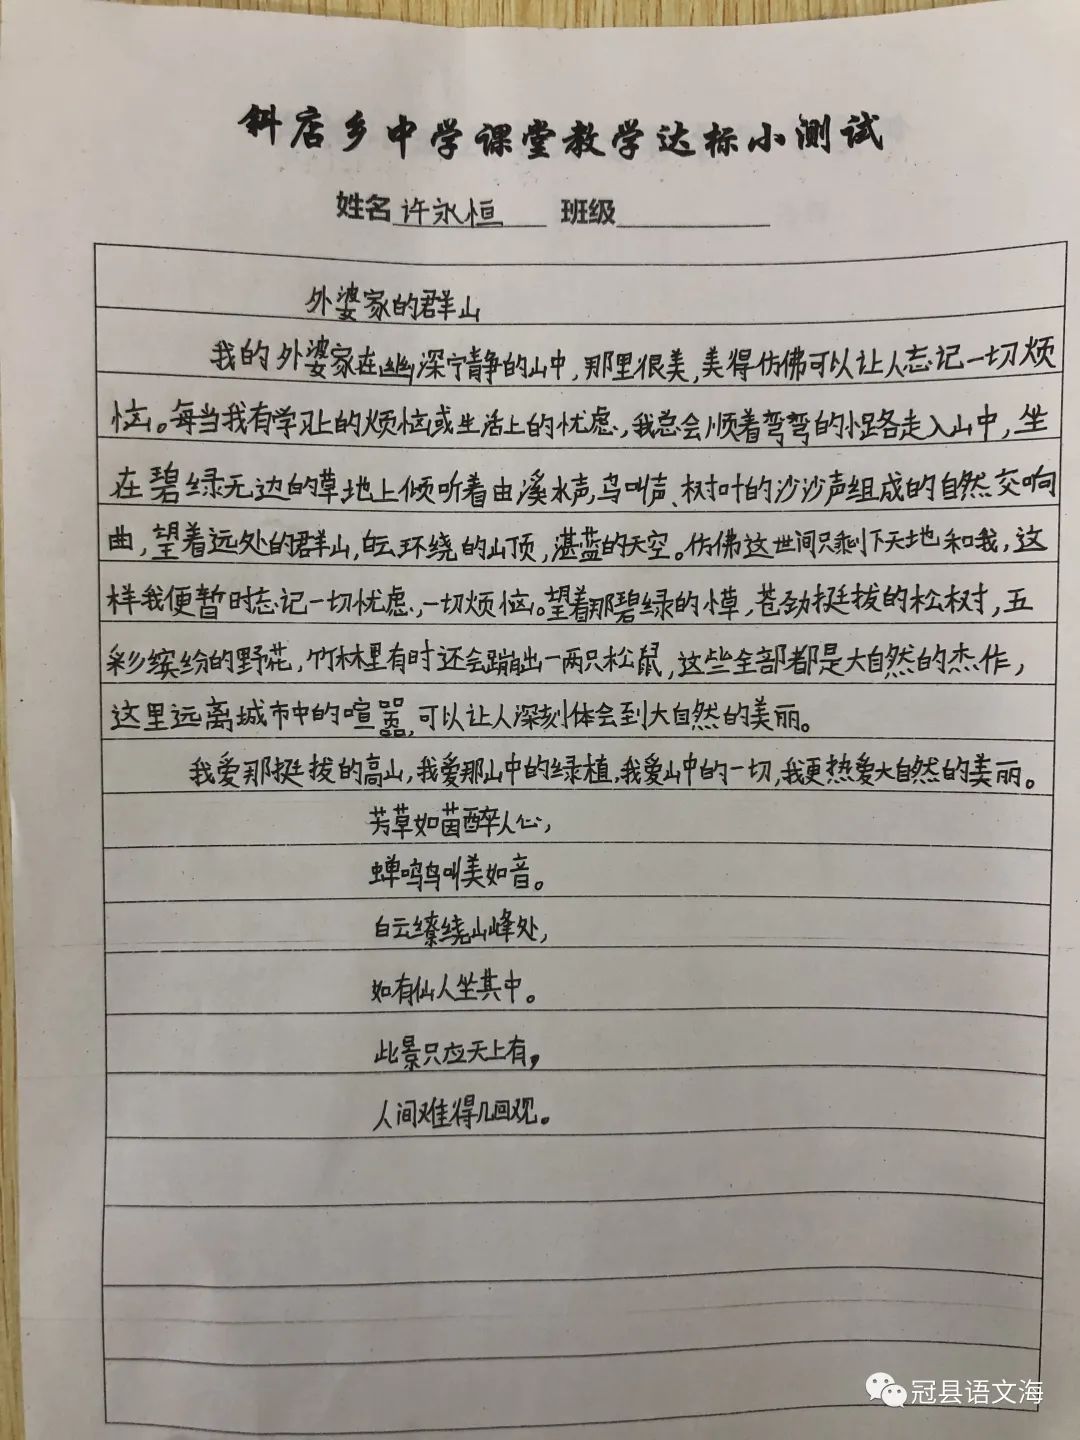 斜店乡中学课堂教学达标小测试
姓名 许永恒 班级
外婆家的群山
我的外婆家在幽深宁静的山中，那里很美，美得仿佛可以让人忘记一切烦
恼。每当我有学习上的烦恼或生活上的忧虑，我总会顺着弯弯的小路走入山中，坐
在碧绿无边的草地上倾听着由溪水声，鸟叫声、树叶的沙沙声组成的自然交响
曲，望着远处的群山，白云环绕的山顶，湛蓝的天空。仿佛这世间只剩下天地和我，这
样我便暂时忘记一切忧虑，一切烦恼。望着那碧绿的小草，苍劲挺拔的松树，五
彩缤纷的野花，竹林里有时还会蹦出一两只松鼠，这些全部都是大自然的杰作，
这里远离城市中的喧嚣，可以让人深刻体会到大自然的美丽。
我爱那挺拔的高山，我爱那山中的绿植，我爱山中的一切，我更热爱大自然的美丽。
芳草如茵醉人心，
蝉鸣鸟叫美如音。
白云缭绕山峰处，
如有仙人坐其中。
此景只应天上有，
人间难得几回观。
冠县语文海